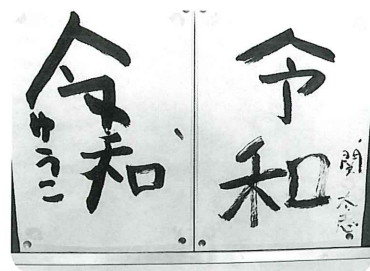 令和
関
令和
ゆうこ